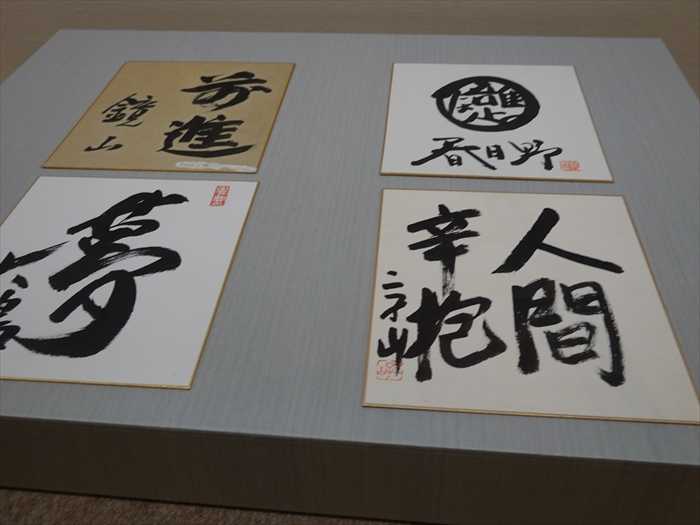 前進
鏡山
春日野
夢
人間
辛抱
二子山